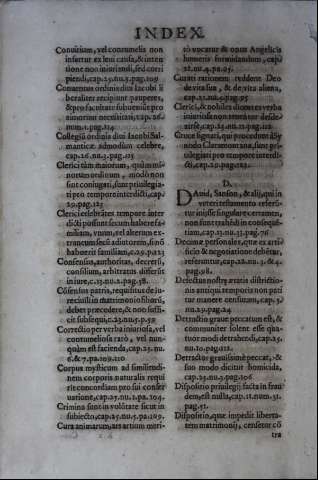 INDEX.
Conuitium, vel contumelia non
infertur ex leui causa, & inten
tione non iniuriandi, sed corri
piendi, cap.25.nu.3.pag.109
Conuentus ordinis diui Iacobi li
beraliter recipiunt pauperes,
& pro facultate subueniunt pro
ximorum necessitati, cap.26.
num.1.pag.114
Collegiū ordinis diui Iacobi Sal-
manticæ admodum celebre,
cap.26.nu.3.pag.115
Clerici tàm maiorum, quàm mi-
norum ordinum, modò non
sint coniugati, sunt priuilegia-
ti pro tempore interdicti, cap.
29.pag.123
Clerici celebrātes tempore inter
dicti possunt secum habere fa-
miliam, vnum, vel alterum ex-
traneum secū adiutorem, si nō
habuerit familiam, c.29.p.123
Consensus, authoritas, decretū,
consilium, arbitratus differūt
in iure, c.13.nu.2.pag.58.
Cōsensus patris, requisitus de iu-
re ciuili in matrimonio filiorū,
debet præcedere, & non suffi-
cit subsequi, c.23.nu.5.p.59
Correctio per verba iniuriosa, vel
contumeliosa raró, vel nun-
quàm est facienda, cap.25.nu.
6.& 7.pa.109.110
Corpus mysticum ad similitudi-
nem corporis naturalis requi
rit concordiam pro sui conser
uatione, cap.25.nu.2.pa.104.
Crimina sunt in volūtate sicut in
subiecto, cap.25.nu.5.pa.109.
Cura animarum, ars artium meri-
tò vocatur & onus Angelicis
humeris formidandum, cap.
22.nu.4.pa.95.
Curati rationem reddent Deo
de vita sua, & de vita aliena,
cap.22.nu.5.pag.95
Clerici, & nobiles diuites verba
iniuriosa non tenētur deside-
rare, cap.25.nu.12.pag.112
Cruce signati, qui procedunt iux
modo Claramontana, sunt pri-
uilegiati pro tempore interdi-
cti, cap.29.pag.123.
D.
Dauid, Sanson, & alij, qui in
veteri testamento referū-
tur iniisse singulare certamen,
non sunt trahēdi in consequē-
tiam, cap.13.nu.13.pag.76
Decimæ personales, quæ ex arti-
ficio & negotiatione debētur,
referuntur, cap.22.nu.3.& 4.
pag.98.
Defectus nostræ ætatis districtio-
nis antiqui temporis non pati
tur manere censuram, cap.3.
nu.29.pag.24
Detractio graue peccatum est, &
communiter solent esse qua-
tuor modi detrahendi, cap.25.
nu.10.pag.112.
Detractor grauissimè peccat, &
suo modo dicitur homicida,
cap.25.nu.3.pag.106
Dispositio priuilegij facta in frau
dem, est nulla, cap.11.num.31.
pag.51.
Dispositio, quæ impedit liberta-
tem matrimonij, censetur cō
tra